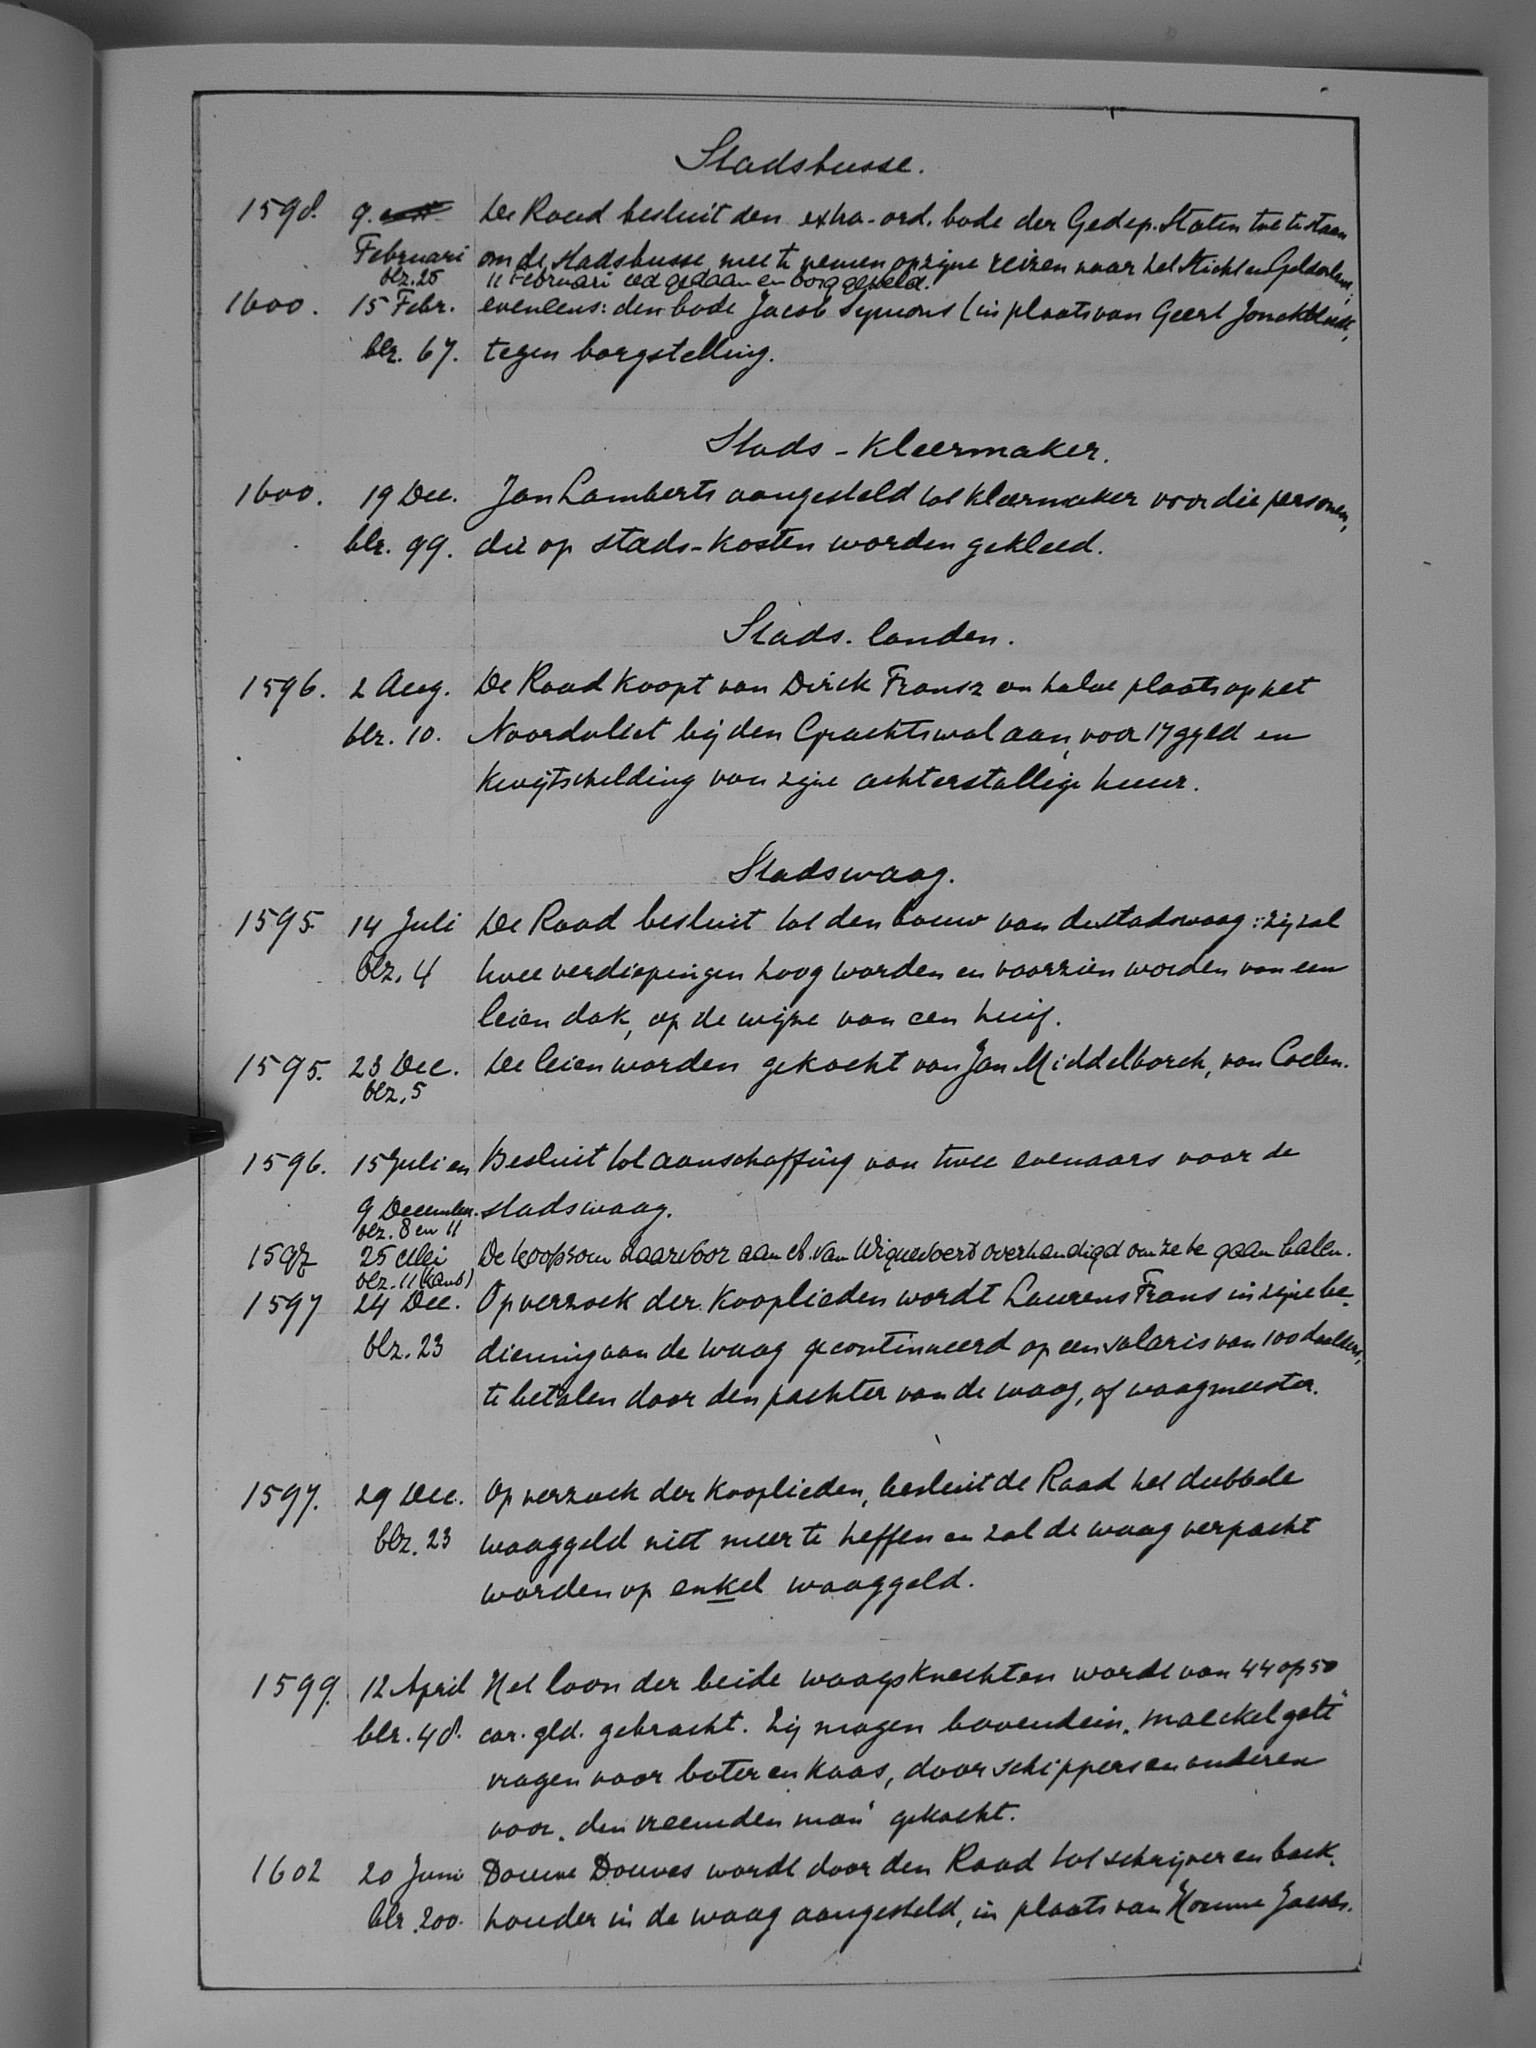 Stadsbusse.
1598. 9. De Raad besluit den extra-ord. bode der Gedep. Staten toe te staan
Februari om de stadsbusse mee te nemen op zijne reizen naar het Sticht en Gelderland;
blz. 25 11 Februari eed gedaan en borg gesteld.
1600. 15 Febr. eveneens: den bode Jacob Symons (in plaats van Geert Jonckbloedt,
blz. 67. tegen borgstelling.
Stads-kleermaker.
1600. 19 Dec. Jan Lamberts aangesteld tot kleermaker voor die personen,
blz. 99. die op stads-kosten worden gekleed.
Stads-landen.
1596. 2 Aug. De Raad koopt van Dirck Fransz een halve plaats op het
blz. 10. Noordvliet bij den Grachtswal aan, voor 17 ggld en
kwijtschelding van zijne achterstallige huur.
Stadswaag.
1595. 14 Juli De Raad besluit tot den bouw van de stadswaag: zij zal
blz. 4 twee verdiepingen hoog worden en voorzien worden van een
leien dak, op de wijze van een huif.
1595. 23 Dec. De leien worden gekocht van Jan Middelborch, van Coelen.
blz. 5
1596. 15 Juli en Besluit tot aanschaffing van twee evenaars voor de
9 December. stadswaag.
blz. 8 en 11
1597 25 Mei De koopsom daarvoor aan A. van Wiquevoert overhandigd om ze te gaan halen.
blz. 11 (kant)
1597 24 Dec. Op verzoek der kooplieden wordt Laurens Frans in zijne be-
blz. 23 diening aan de waag gecontinueerd op een salaris van 100 daalders,
te betalen door den pachter van de waag, of waagmeester.
1597. 29 Dec. Op verzoek der kooplieden, besluit de Raad het dubbele
blz. 23 waaggeld niet meer te heffen en zal de waag verpacht
worden op enkel waaggeld.
1599. 12 April Het loon der beide waagsknechten wordt van 44 op 50
blz. 48. car. gld. gebracht. Zij mogen bovendein „maeckelgelt"
vragen voor boter en kaas, door schippers en anderen
voor „den vreemden man" gekocht.
1602 20 Juni Douwe Douwes wordt door den Raad tot schrijver en boek-
blz. 200. houder in de waag aangesteld, in plaats van Homme Jacobs.